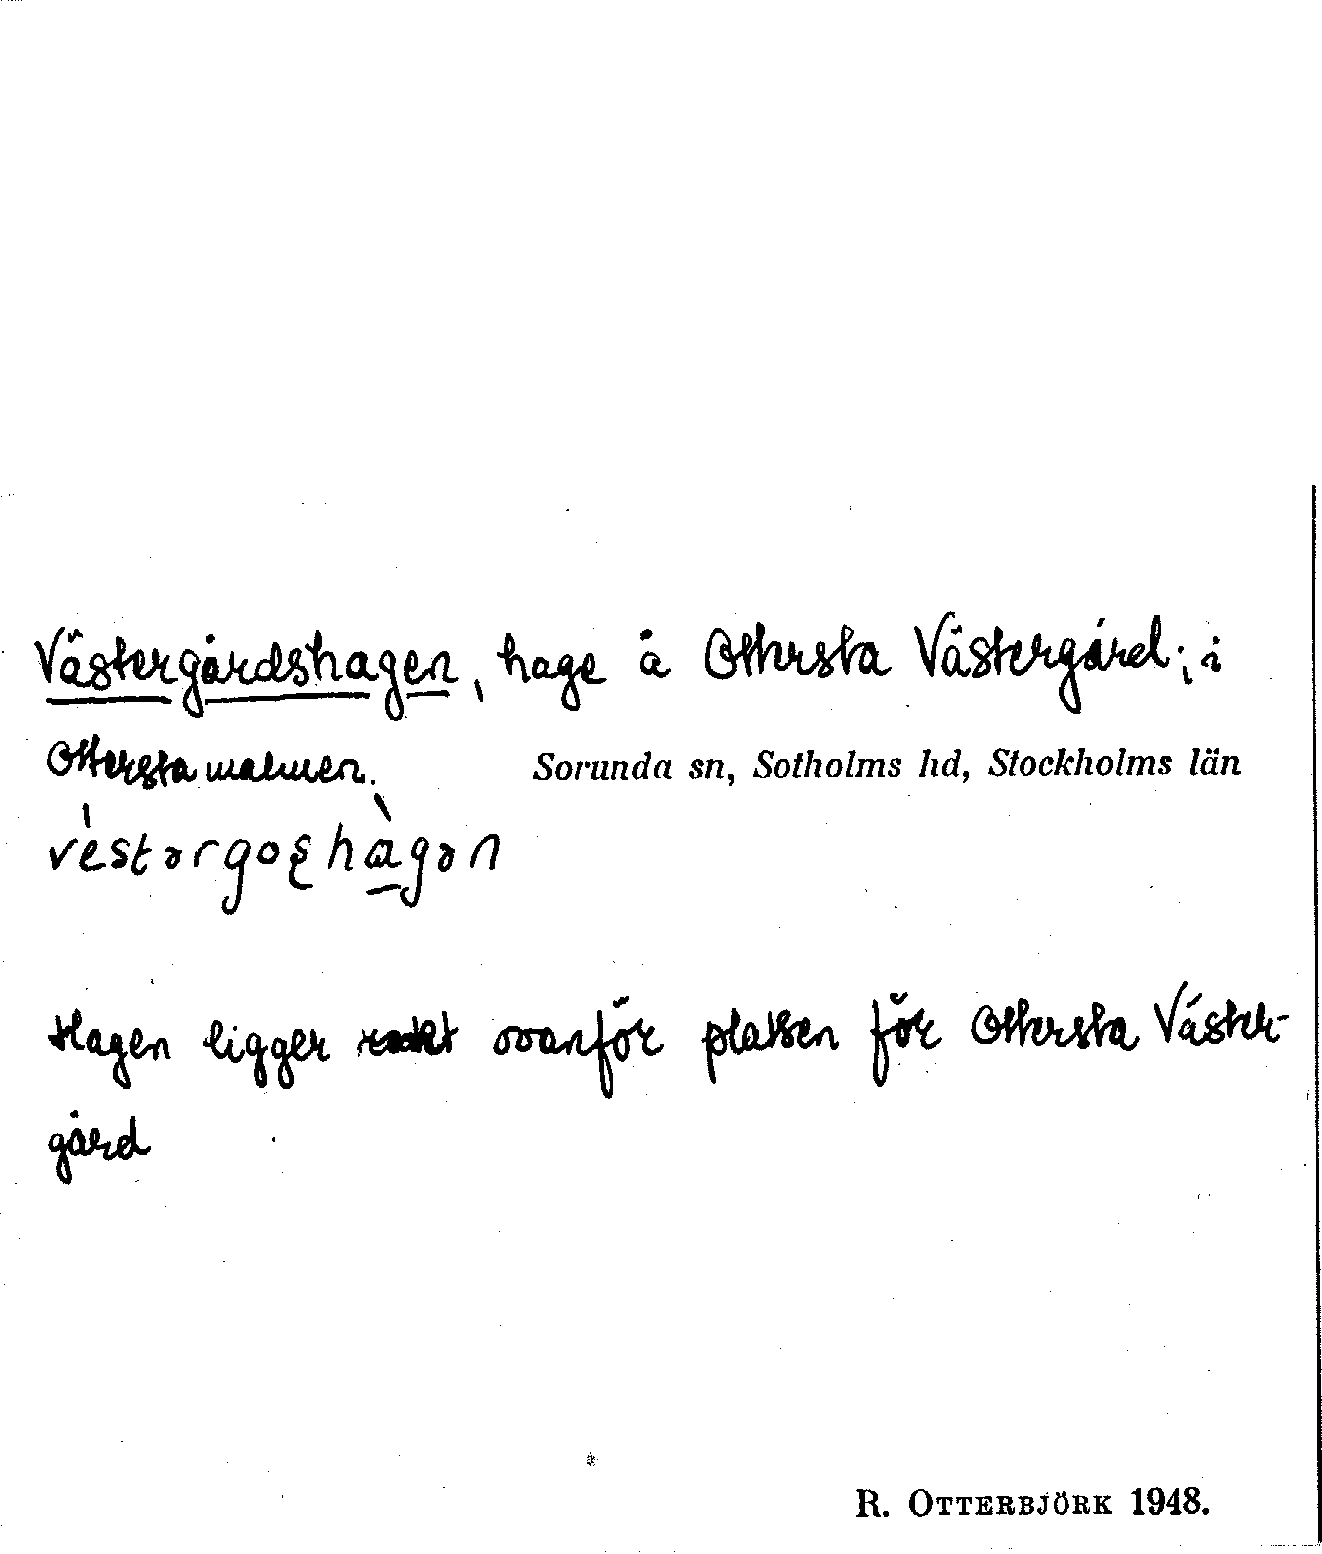 Västergårdshagen, hage å Ottersta Västergård; i
Otterstamalmen. Sorunda sn, Sotholms hd, Stockholms län
vèstərgoʂhàgən
Hagen ligger ovanför platsen för Ottersta Väster-
gård
R. OTTERBJÖRK 1948.